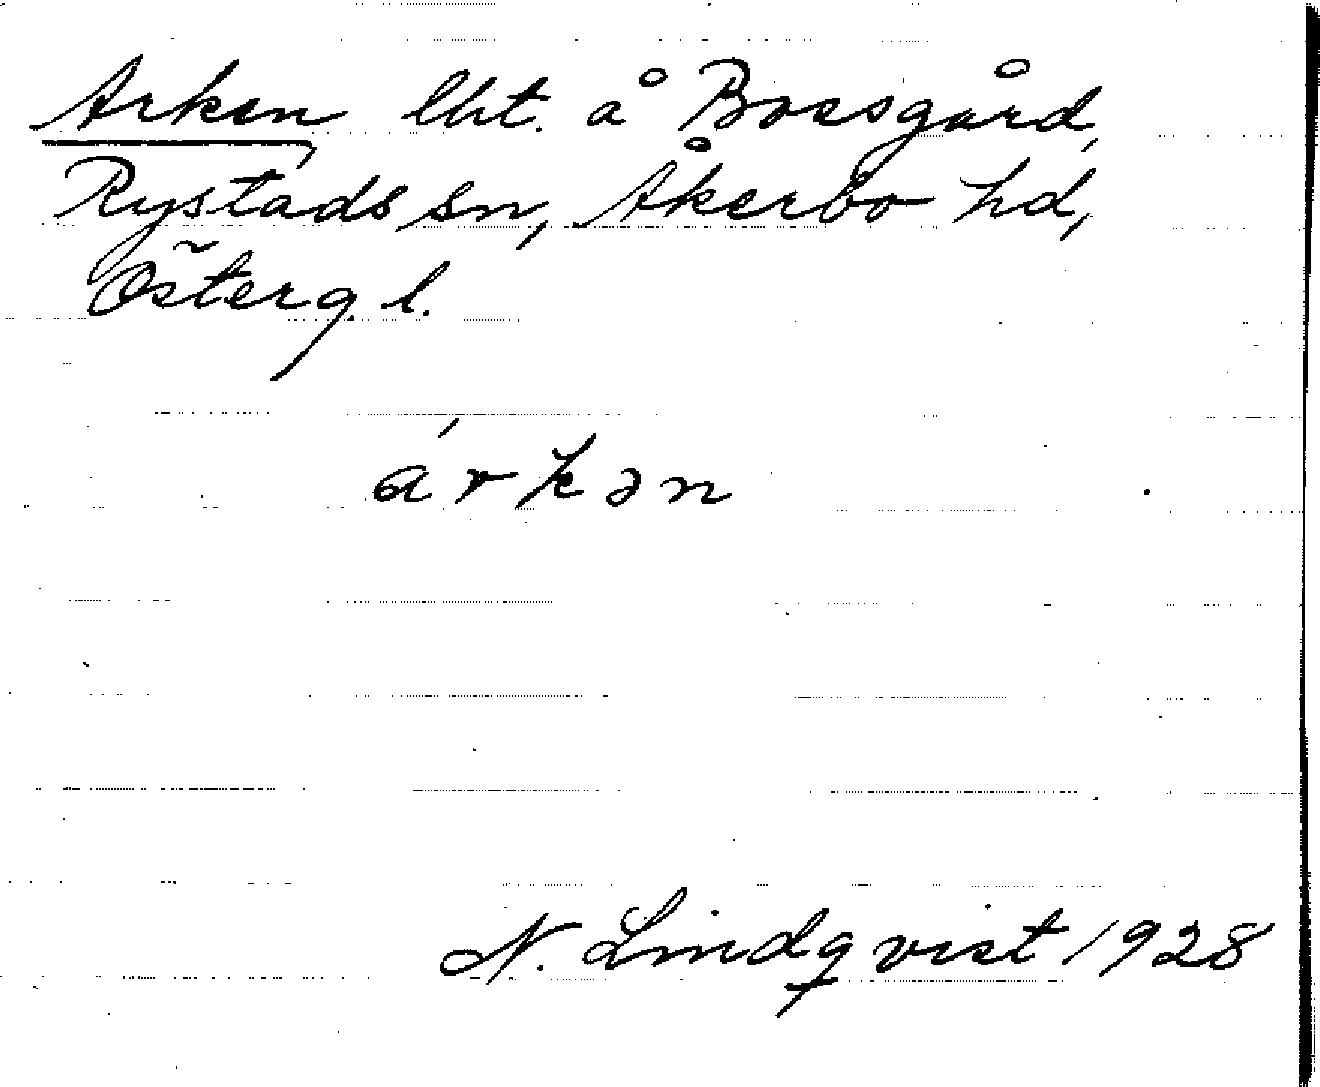 Arken, lht. å Bossgård,
Rystads sn, Åkerbo hd,
Österg. l.
árkən
N. Lindqvist 1928